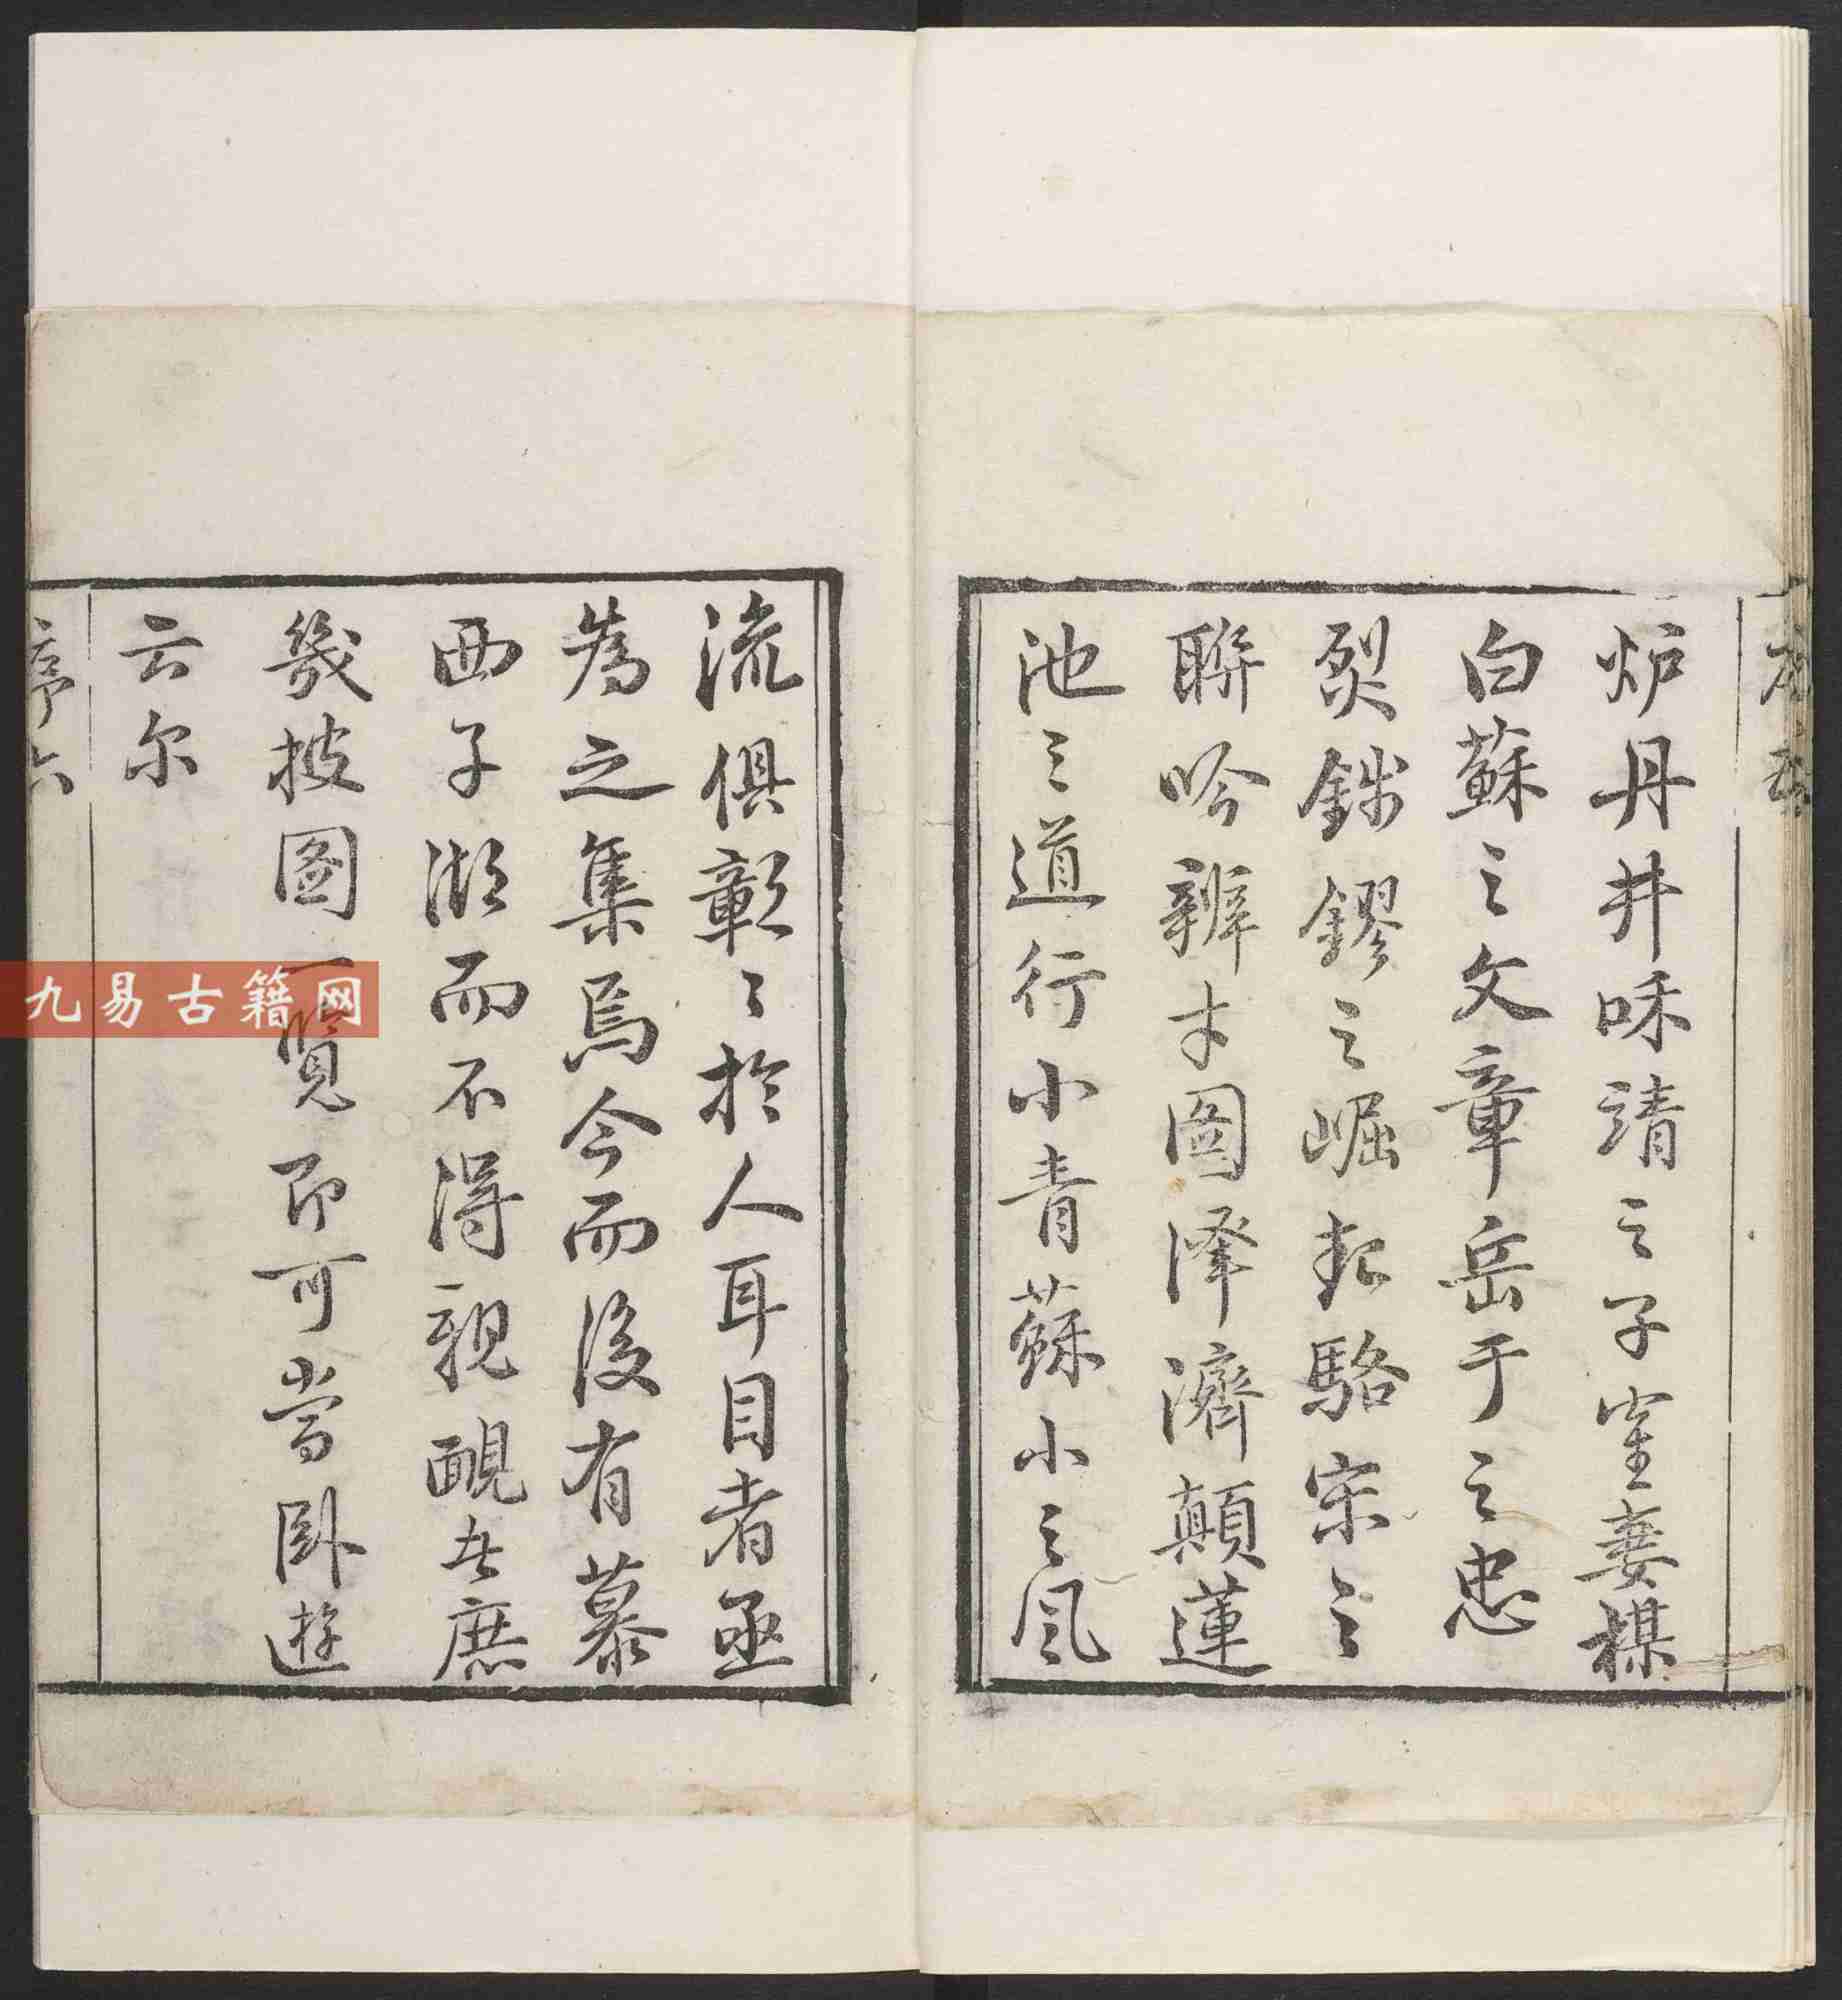 炉丹井咊靖之子室妻楳
白蘇之文章岳于之忠
烈銭鏐之崛起駱宋之
聨吟辨才圓澤濟顛蓮
池之道行小青蘇小之風
流俱彰〻於人耳目者亟
為之集焉今而後有慕
西子湖而不得親覩者庶
幾披圖一覽即可當卧遊
云尔
序六
九易古籍网